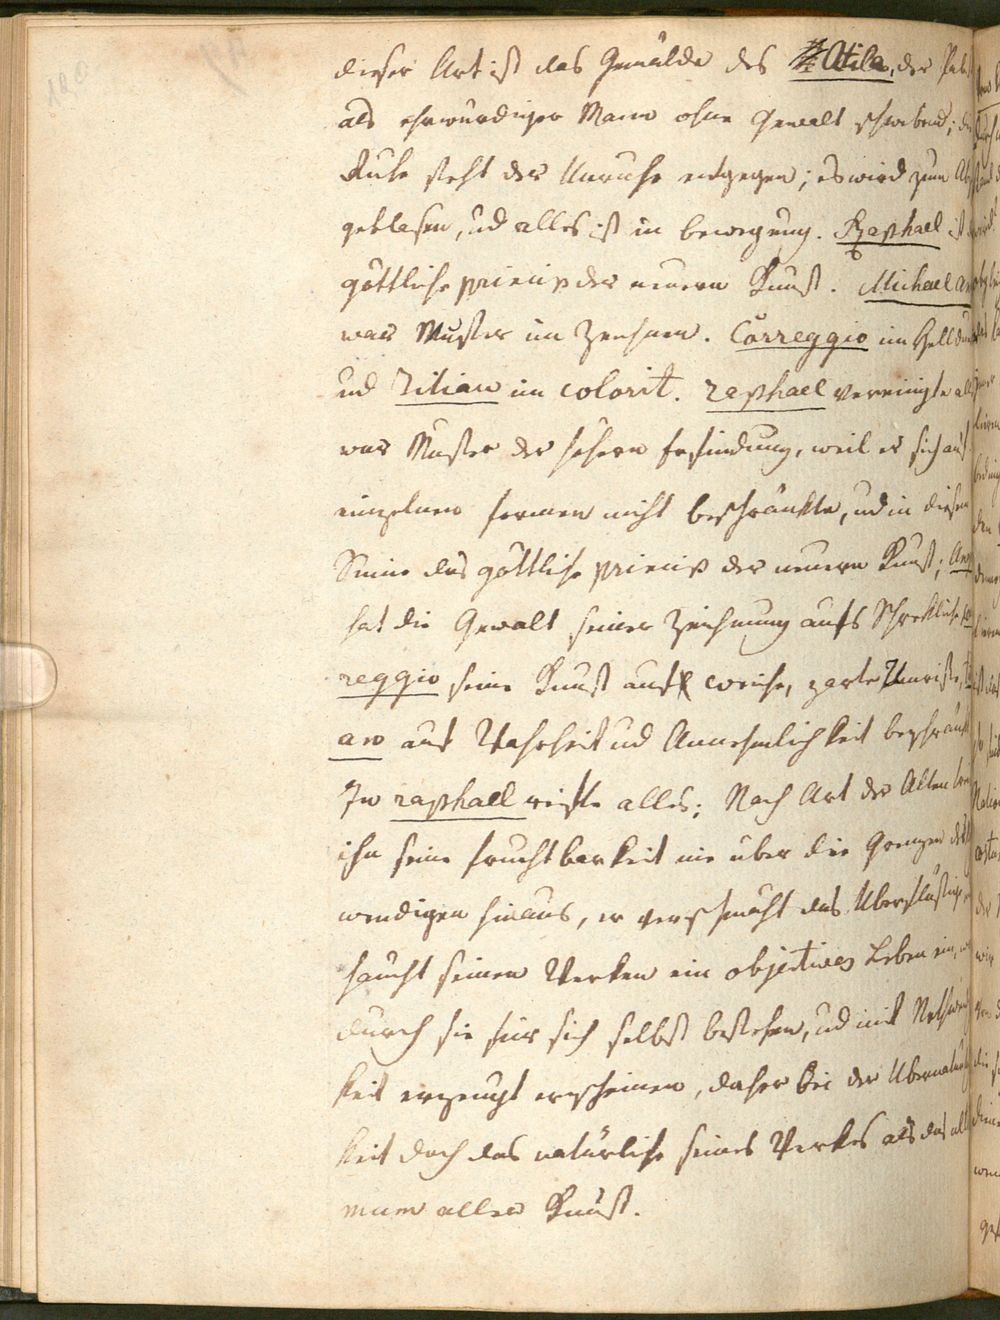 dieser Art ist das Gemälde des Atila, der Pabst
als ehrwürdiger Mann ohne Gewalt schwebend; die
Ruhe steht der Unruhe entgegen; es wird zum Ab
geblasen, ud alles ist in bewegung. Raphael ist
göttliche princip der neuern Kunst. Michael An
war Muster im Zeichnen. Correggio im Helldun
ud Titian im colorit. raphael vereinigte all
war Muster der höhern Erfindung, weil er sich auf
einzelnen formen nicht beschränkte, ud in diesem
Sinne das göttliche princip der neuern Kunst; Ang
hat die Gewalt seiner Zeichnung aufs Schrekliche, Co
reggio seine Kunst auf weiche, zarte Umrisse, Ti
an auf Wahrheit ud Annehmlichkeit beschränkt
In raphael reifte alles; Nach Art der Alten
ihn seine fruchtbarkeit nie über die Grenzen des
wendigen hinaus, er verschmäht das Uberflüßige
haucht seinen Werken ein objectives Leben ein,
durch sie für sich selbst bestehen, ud mit Nothwendig
keit erzeugt erscheinen, daher bei der Ubernatürlich
keit doch das natürliche seines Werkes als das
mum aller Kunst.